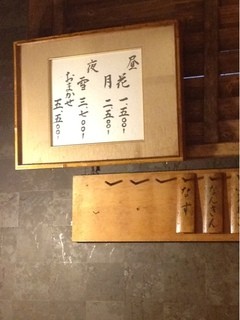 昼
花 一、五〇〇
月 二、五〇〇
夜
雪 三、七〇〇
おまかせ 五、五〇〇
なんきん
なす